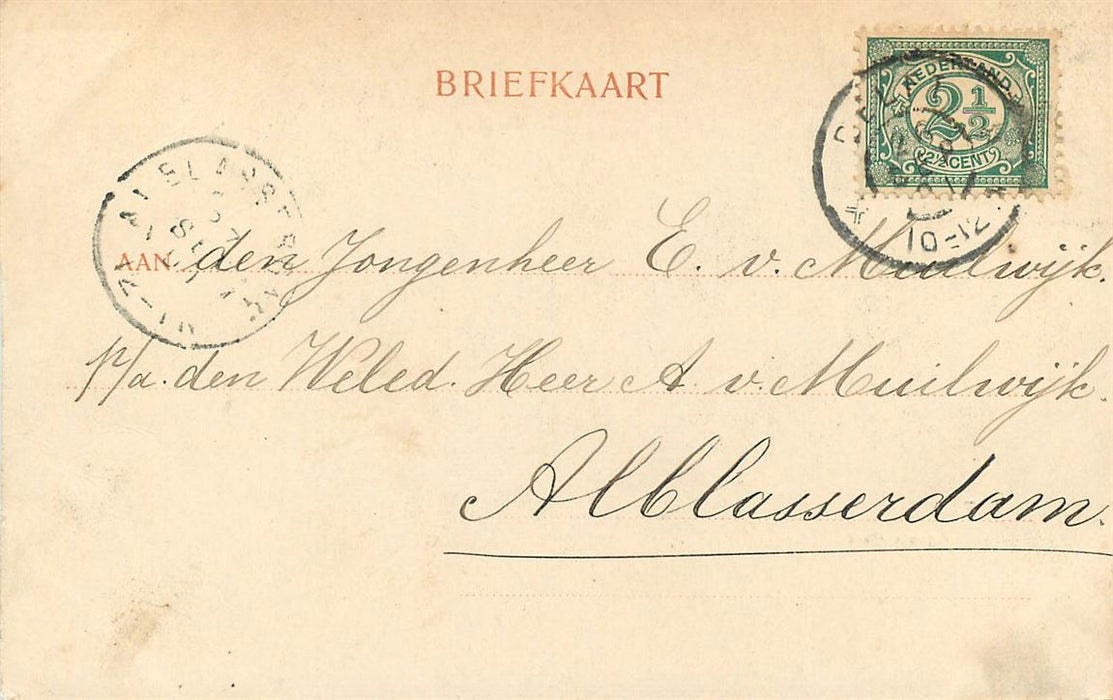 BRIEFKAART
NEDERLAND
2½
2½ CENT
10-12
AAN den Jongenheer E. v. Muilwijk.
p/a. den Weled. Heer A v. Muilwijk.
Alblasserdam.